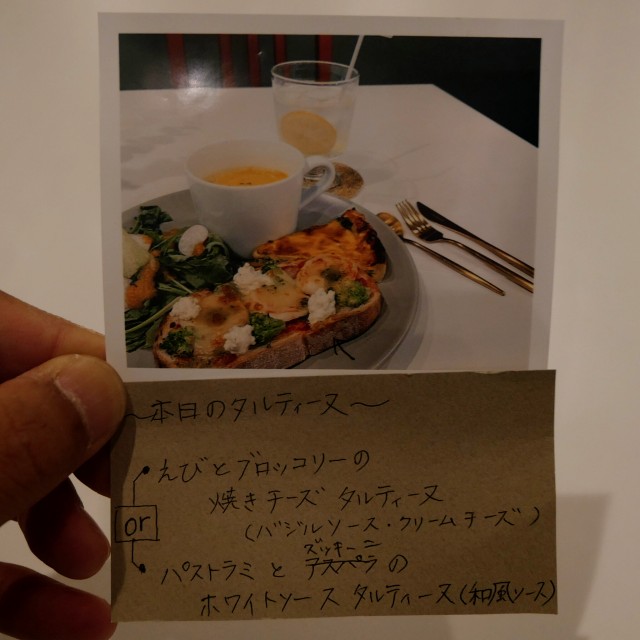 〜本日のタルティーヌ〜
・えびとブロッコリーの
焼きチーズ タルティーヌ
(バジルソース・クリームチーズ)
or
ズッキーニ
・パストラミと の
ホワイトソース タルティーヌ(和風ソース)